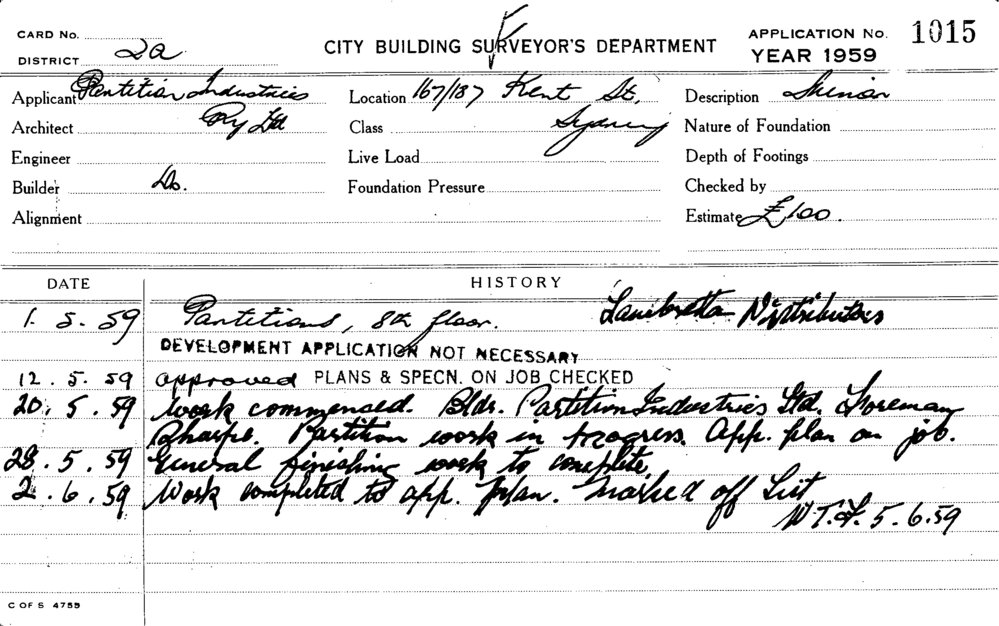 CARD No.
DISTRICT 2a
CITY BUILDING SURVEYOR'S DEPARTMENT
APPLICATION No. 1015
YEAR 1959
Applicant Partition Industries
Pty Ltd
Architect
Engineer
Builder Do.
Alignment
Location 167/187 Kent St,
Sydney
Class
Live Load
Foundation Pressure
Description Minor
Nature of Foundation
Depth of Footings
Checked by
Estimate £100.
DATE HISTORY
1. 5. 59 Partitions, 8th floor. Lambretta Distributors
DEVELOPMENT APPLICATION NOT NECESSARY
12. 5. 59 approved PLANS & SPECN. ON JOB CHECKED
20. 5. 59 Work commenced. Bldr. Partition Industries Ltd. Foreman
Sharpe. Partition work in progress. App. plan on job.
28. 5. 59 General finishing work to complete
2. 6. 59 Work completed to app. plan. Marked off List
5.6.59
C OF S 4759